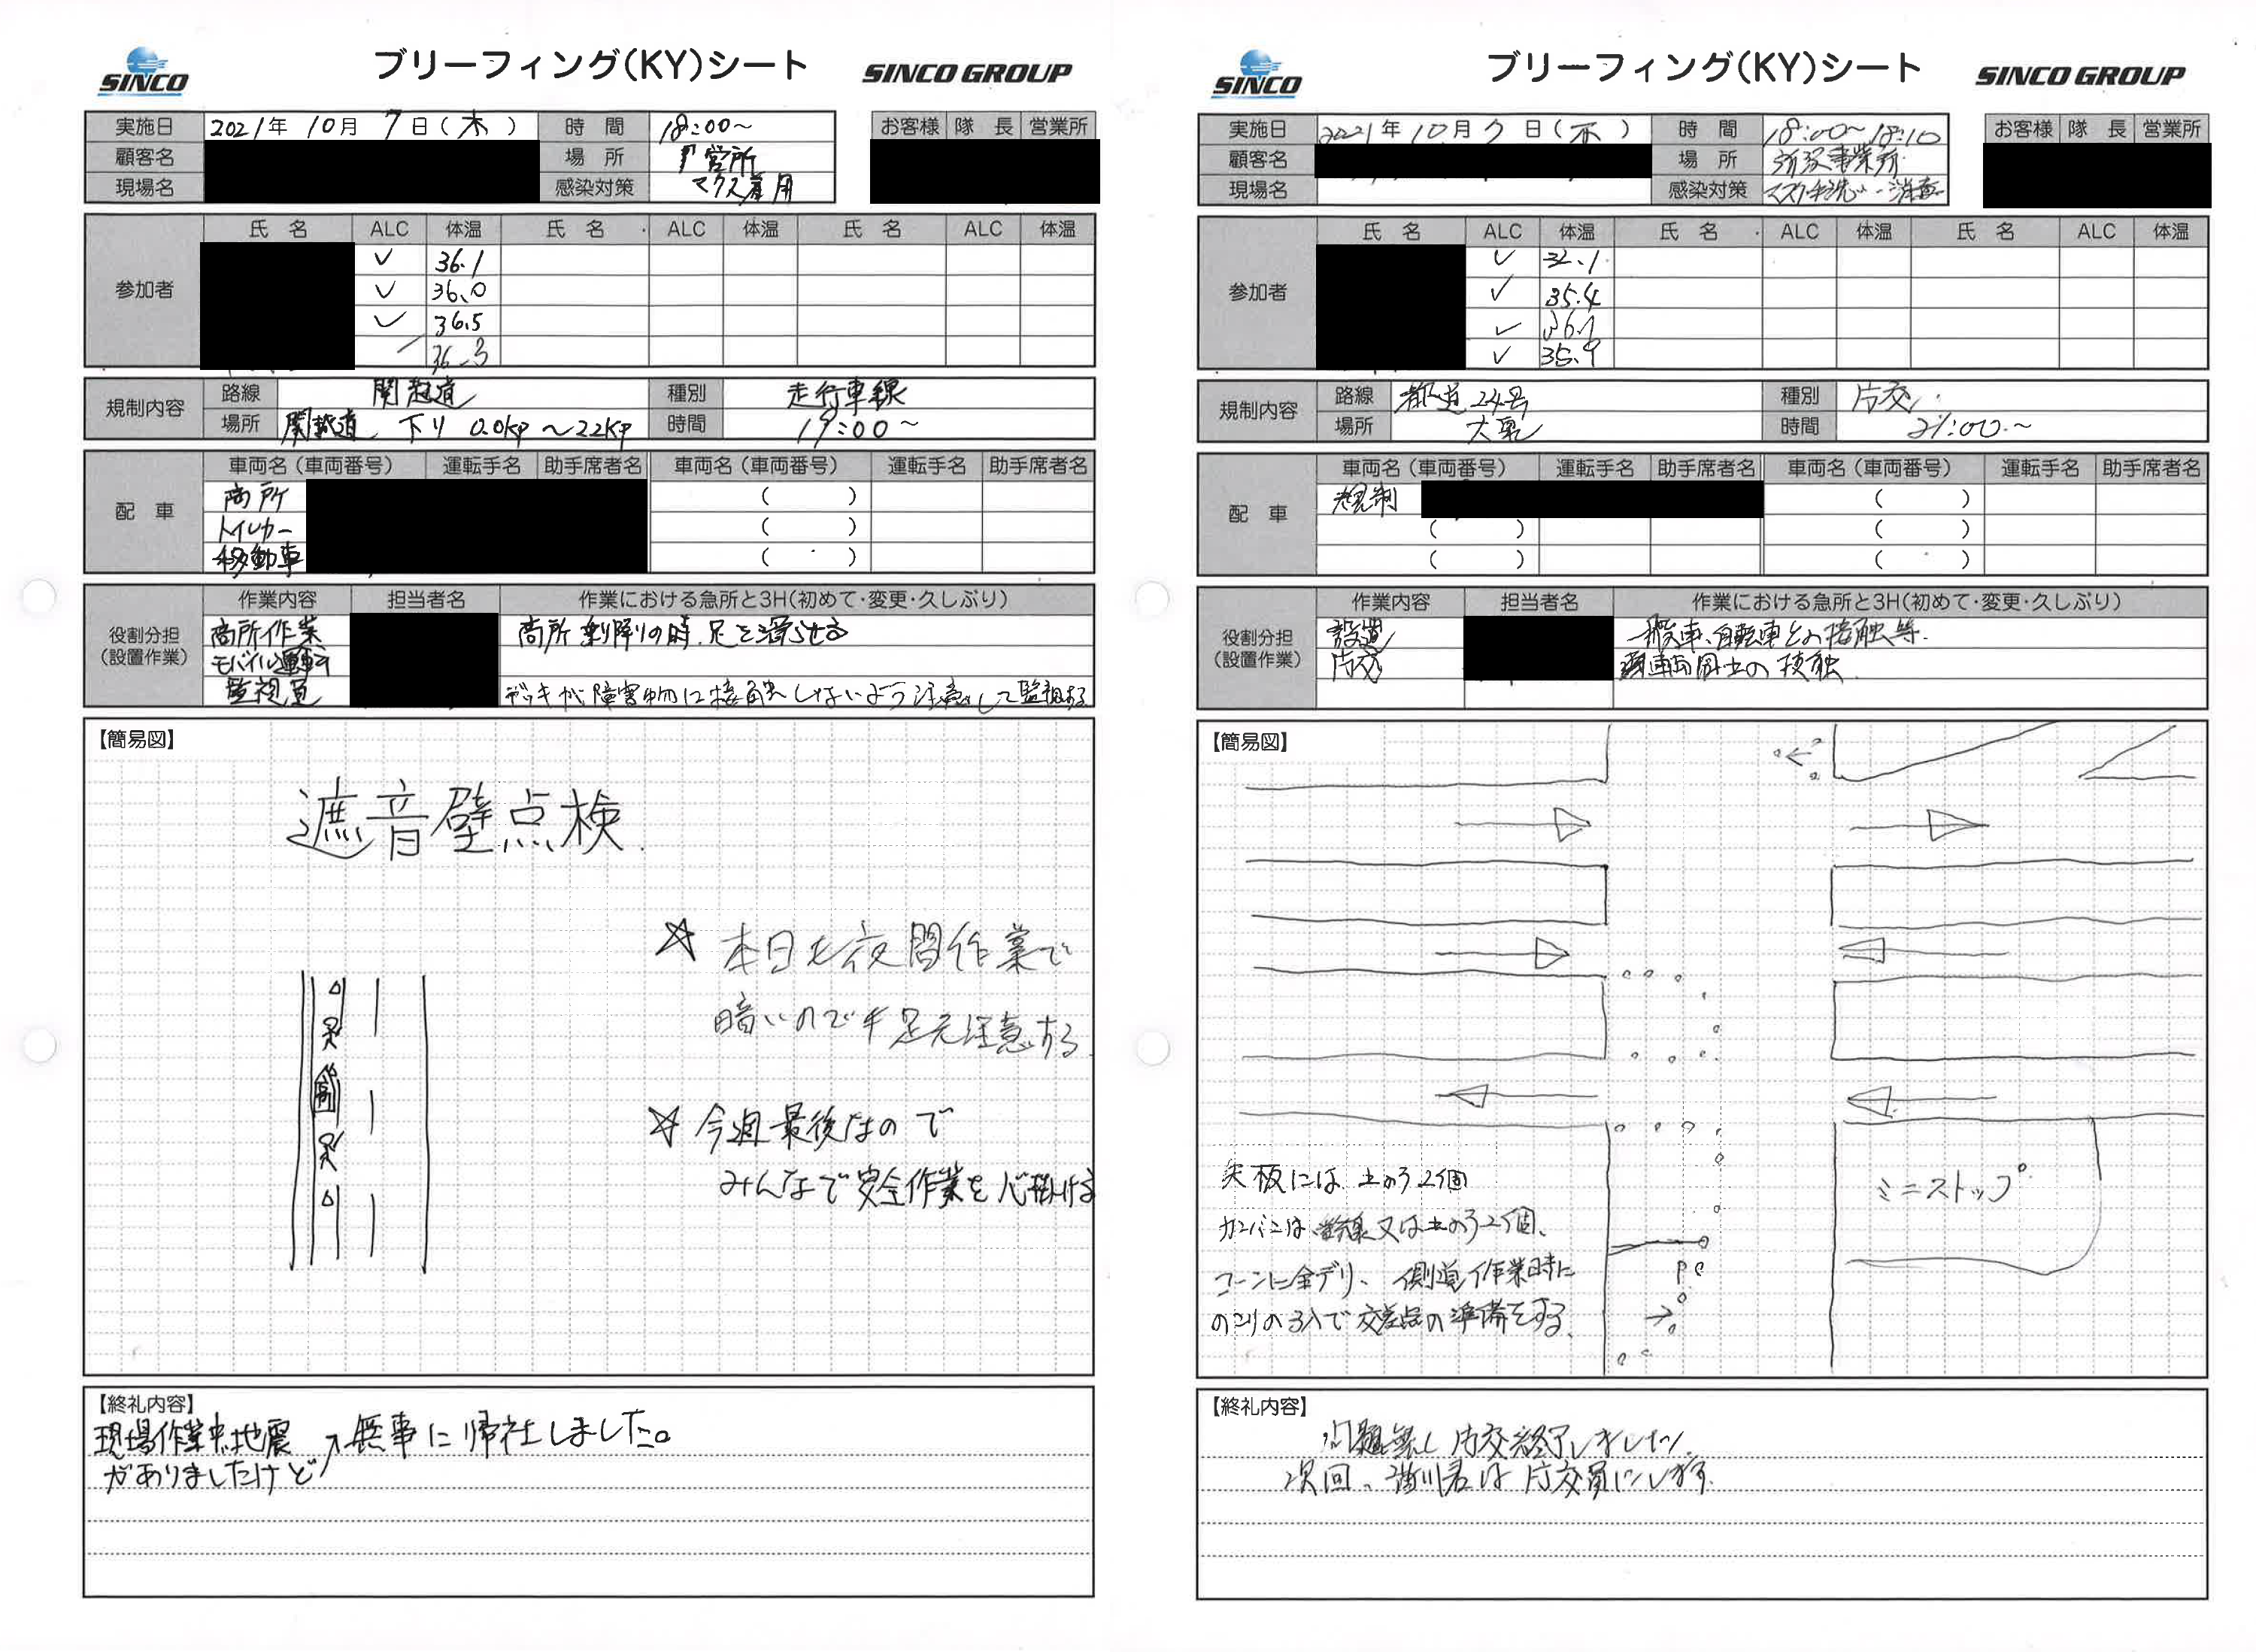 SINCO
ブリーフィング(KY)シート
SINCO GROUP
実施日 2021年 10月 7日(木) 時間 18:00~
お客様 隊長 営業所
顧客名 場所 営所
現場名 感染対策 マクス着用
参加者
氏名 ALC 体温 氏名 ALC 体温 氏名 ALC 体温
✓ 36.1
✓ 36.0
✓ 36.5
36.3
規制内容
路線 関越道 種別 走行車線
場所 関越道、下り 0.0kp~22kp 時間 19:00~
配車
車両名(車両番号) 運転手名 助手席者名 車両名(車両番号) 運転手名 助手席者名
高所 ( )
トイレカー ( )
移動車 ( )
役割分担
(設置作業)
作業内容 担当者名 作業における急所と3H(初めて・変更・久しぶり)
高所作業 高所乗降りの時、足を滑らせる
モバイル運転
監視員 デッキが障害物に接触しないよう注意して監視する
【簡易図】
遮音壁点検
☆ 本日も夜間作業で
暗いので手足元注意する
高
☆ 今週最後なので
みんなで安全作業を心掛ける
【終礼内容】
現場作業中地震
がありましたけど
無事に帰社しました。
SINCO
ブリーフィング(KY)シート
SINCO GROUP
実施日 2021年 10月 7日(木) 時間 18:00~18:10
お客様 隊長 営業所
顧客名 場所 所沢事業所
現場名 感染対策 マスク手洗い・消毒
参加者
氏名 ALC 体温 氏名 ALC 体温 氏名 ALC 体温
✓
✓ 35.4
✓ 36.1
✓ 35.9
規制内容
路線 都道24号 種別 片交
場所 時間 21:00~
配車
車両名(車両番号) 運転手名 助手席者名 車両名(車両番号) 運転手名 助手席者名
規制 ( )
( ) ( )
( ) ( )
役割分担
(設置作業)
作業内容 担当者名 作業における急所と3H(初めて・変更・久しぶり)
設置 一般車、自転車との接触等
片交 車両同士の接触
【簡易図】
矢板には 土のう2個
カンバンは 又は土のう2個、
コーンに全デリ、側道作業時に
のこりの3人で交差点の準備をする。
ミニストップ
【終礼内容】
問題無し片交終了しました。
次回、 川君は片交員にします。